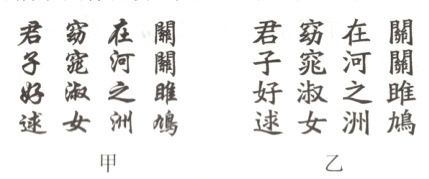 關關雎鳩
在河之洲
窈窕淑女
君子好逑
甲
關關雎鳩
在河之洲
窈窕淑女
君子好逑
乙